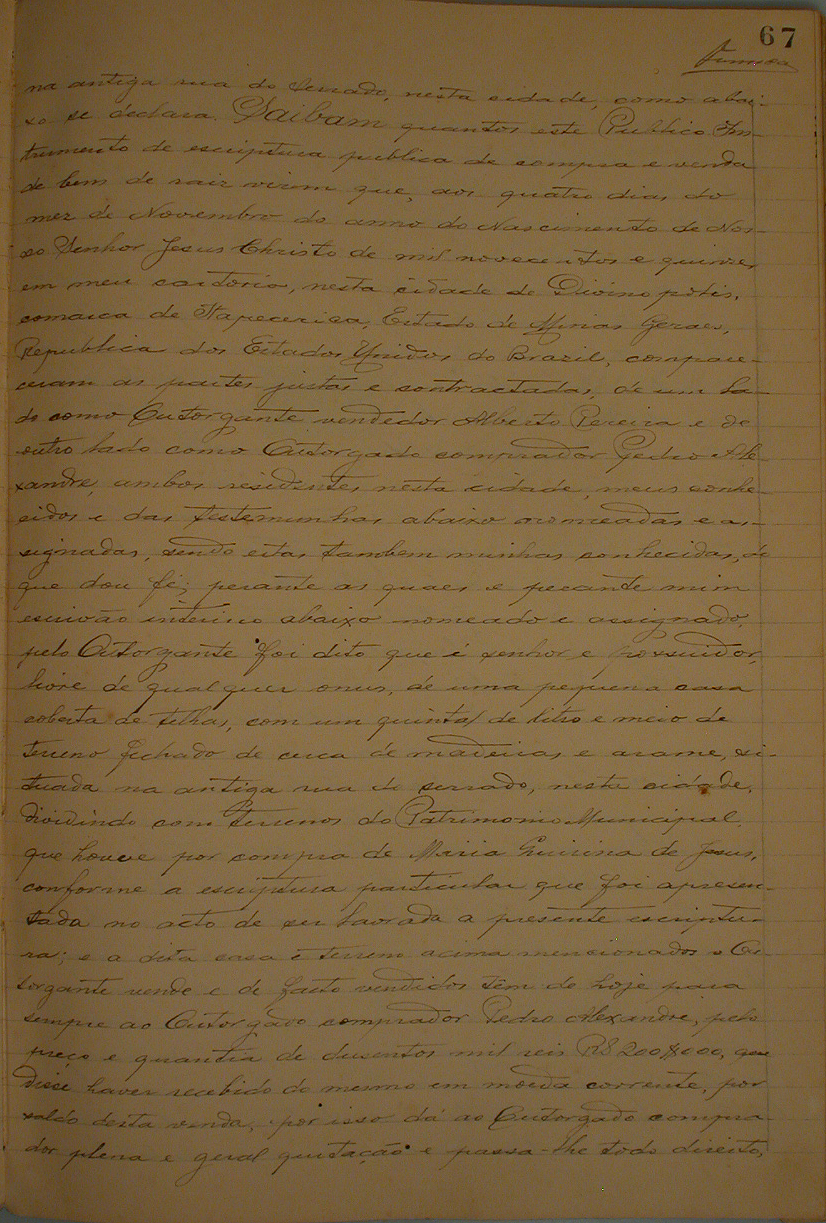 67
Fonseca
na antiga rua do Serrado, nesta cidade, como abai-
xo se declara. Saibam quantos este Publico Ins-
trumento de escriptura publica de compra e venda
de bem de raiz virem que, aos quatro dias do
mez de Novembro do anno do Nascimento de Nos-
so Senhor Jesus Christo de mil novecentos e quinze,
em meu cartorio, nesta cidade de Divinopolis,
comarca de Itapecerica, Estado de Minas Geraes,
Republica dos Estados Unidos do Brazil, compare-
ceram as partes justas e contractadas, de um la-
do como Outorgante vendedor Alberto Pereira e do
outro lado como Outorgado comprador Pedro Ale-
xandre, ambos residentes nesta cidade, meus conhe-
cidos e das testemunhas abaixo nomeadas e as-
signadas, sendo estas tambem minhas conhecidas, do
que dou fé; perante as quaes e perante mim
escrivão interino abaixo nomeado e assignado,
pelo Outorgante foi dito que é senhor e possuidor,
livre de qualquer onus, de uma pequena casa
coberta de telhas, com um quintal de litro e meio de
terreno fechado de cerca de madeiras e arame, si-
tuada na antiga rua do serrado, nesta cidade,
dividindo com terrenos do Patrimonio Municipal
que houve por compra de Maria Quirina de Jesus,
conforme a escriptura particular que foi apresen-
tada no acto de ser lavrada a presente escriptu-
ra; e a dita casa e terreno acima mencionados o Ou-
torgante vende e de facto vendidos tem de hoje para
sempre ao Outorgado comprador Pedro Alexandre, pelo
preço e quantia de dusentos mil reis R$ 200$000, que
disse haver recebido do mesmo em moeda corrente, por
saldo desta venda, por isso dá ao Outorgado compra-
dor plena e geral quitação e passa-lhe todo direito,